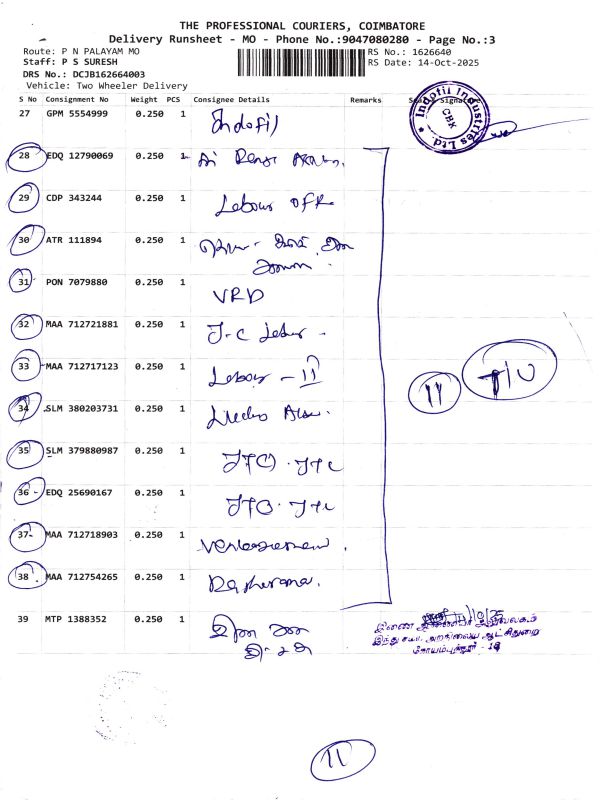 THE PROFESSIONAL COURIERS, COIMBATORE
Delivery Runsheet - MO - Phone No.:9047080280 - Page No.:3
Route: P N PALAYAM MO
RS No.: 1626640
Staff: P S SURESH
RS Date: 14-Oct-2025
DRS No.: DCJB162664003
Vehicle: Two Wheeler Delivery
S No Consignment No Weight PCS Consignee Details Remarks Seal & Signature
27 GPM 5554999 0.250 1 Indofil
Indofil Industries Ltd.
CBX
28 EDQ 12790069 0.250 1
29 CDP 343244 0.250 1 Labour
30 ATR 111894 0.250 1
31 PON 7079880 0.250 1 VRD
32 MAA 712721881 0.250 1 J-C Labour
33 MAA 712717123 0.250 1 Labour - 11
34 SLM 380203731 0.250 1
35 SLM 379880987 0.250 1 JTO. JTC
36 EDQ 25690167 0.250 1 JTO. JTC
37 MAA 712718903 0.250 1
38 MAA 712754265 0.250 1
11
39 MTP 1388352 0.250 1
இணை ஆணையர் அலுவலகம்
இந்து சமய அறநிலைய ஆட்சித்துறை
கோயம்புத்தூர் - 18
11